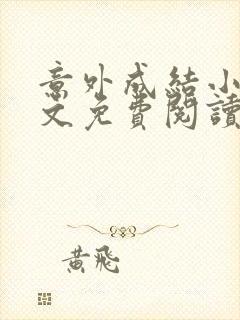 意外成結小
文免費閱讀
黃飛